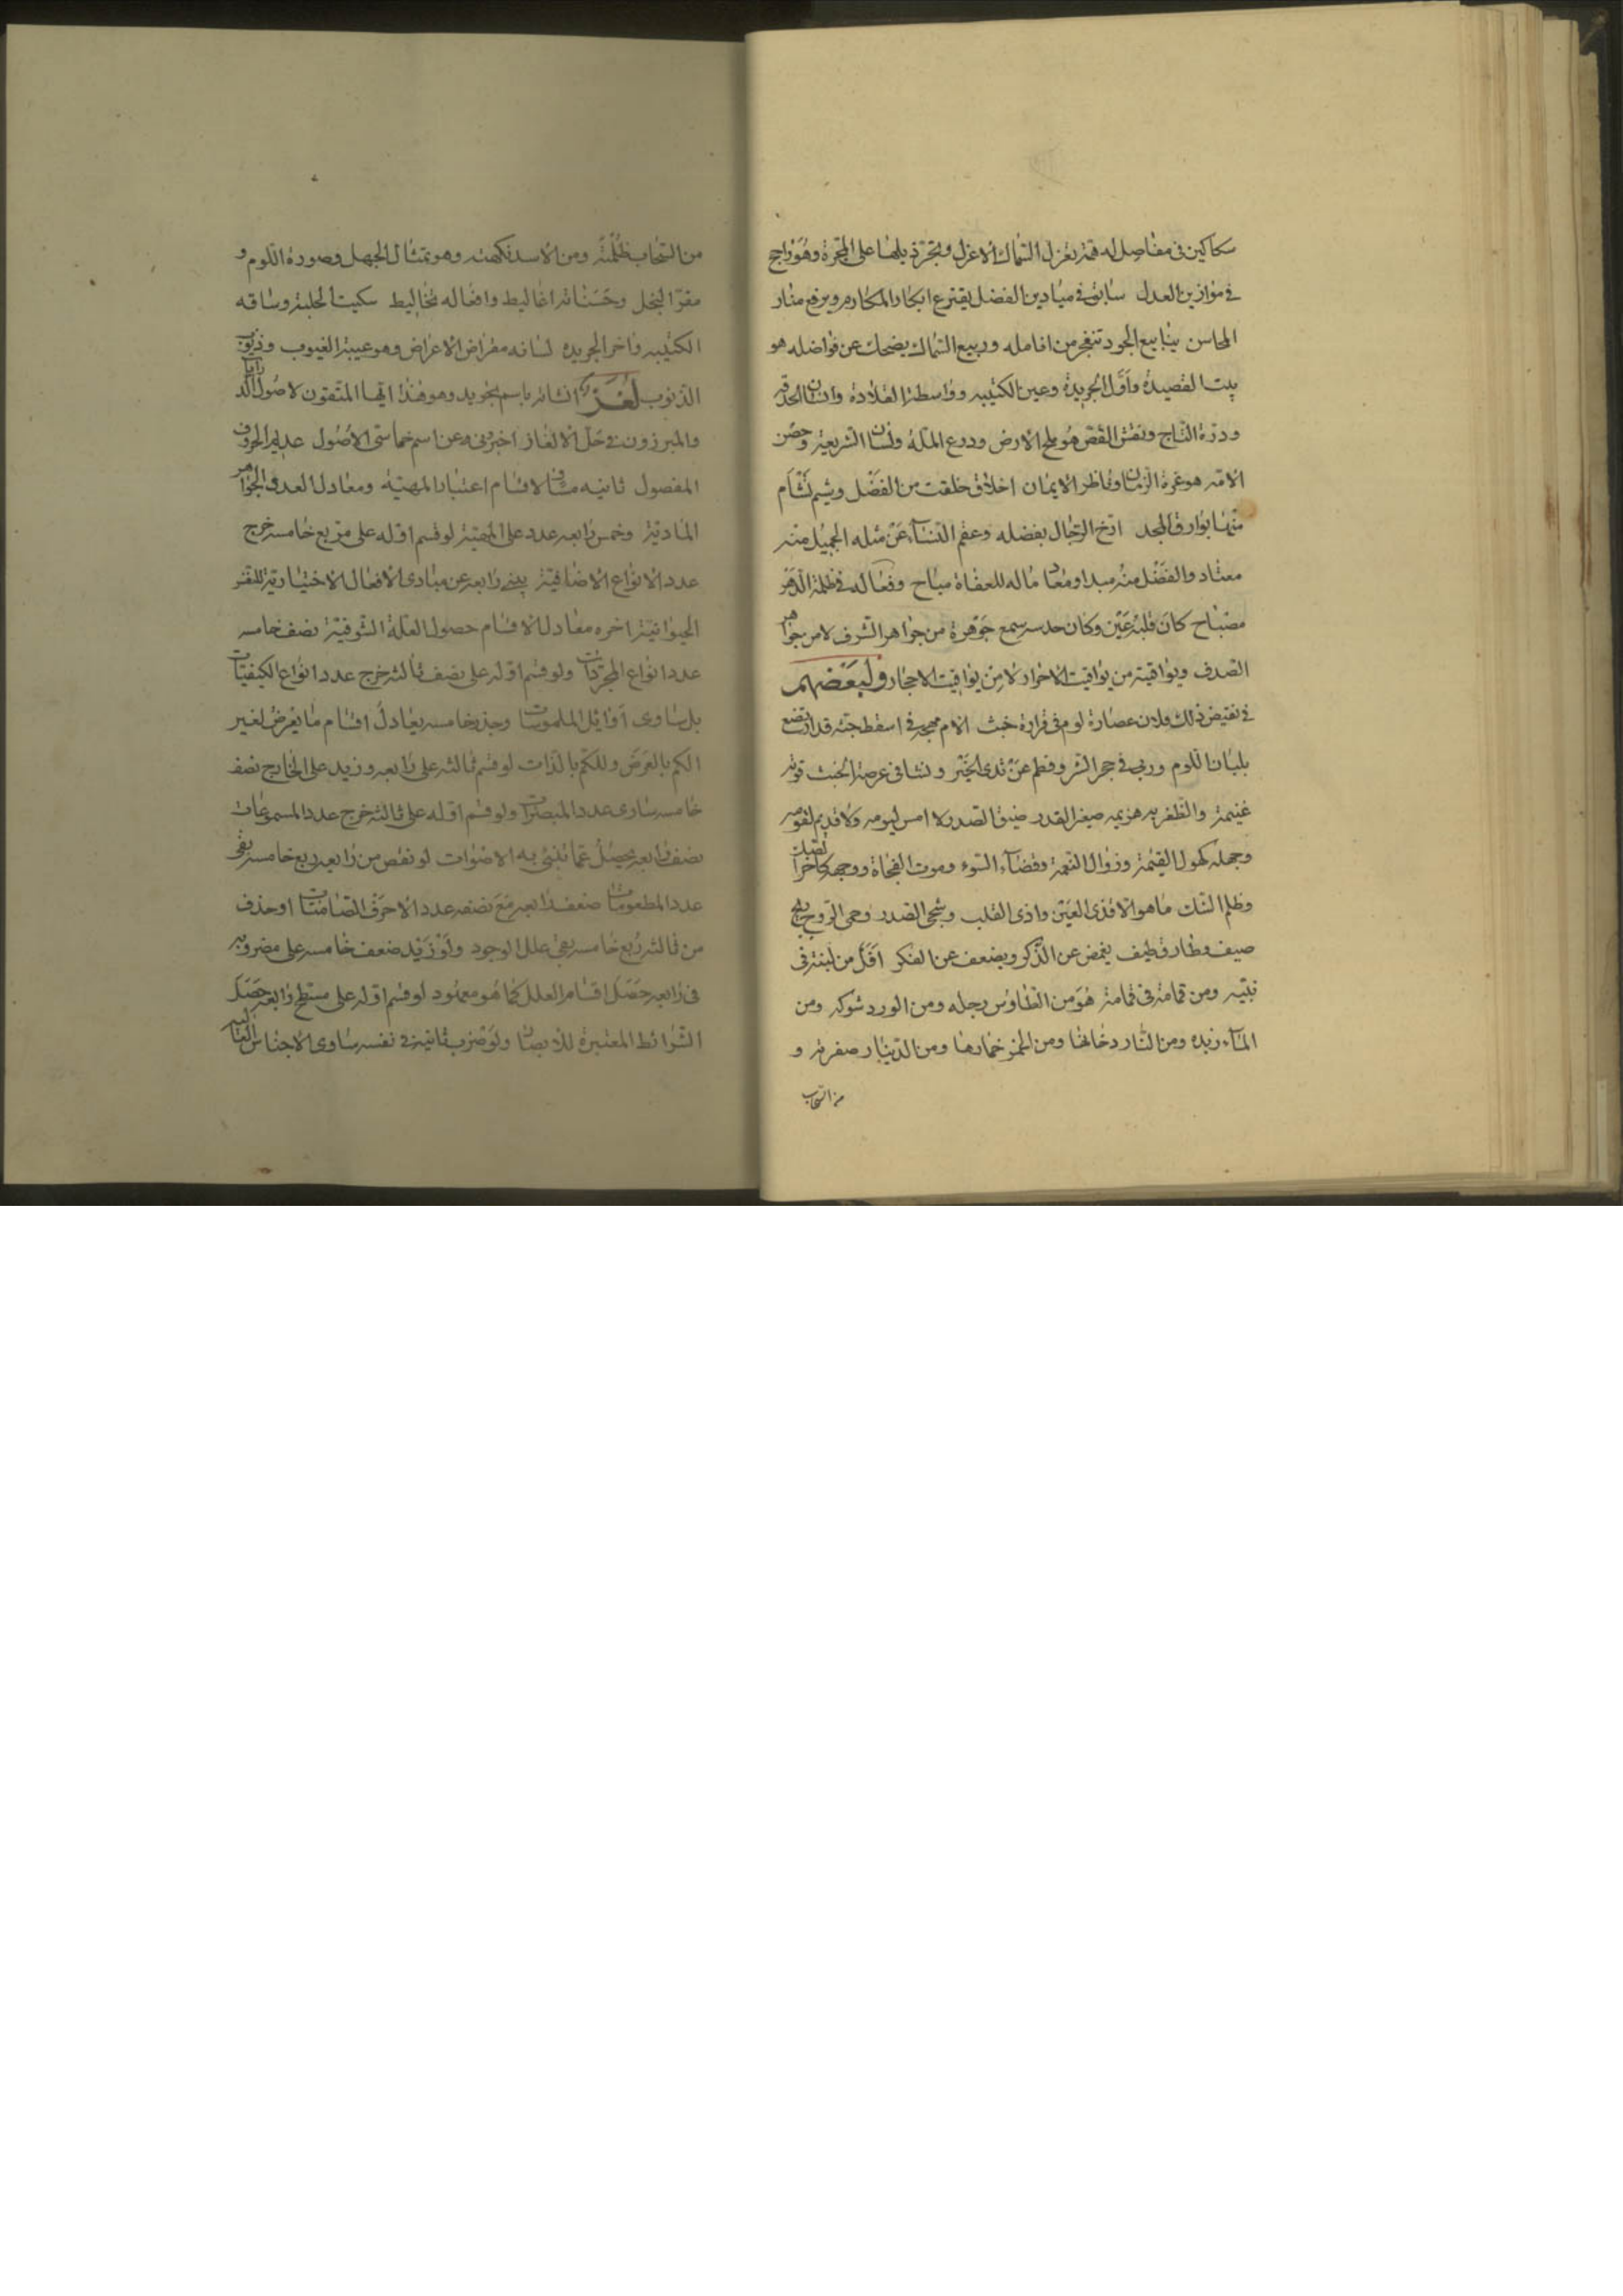 سكاكين فى مفاصله له همة تعزل السماك الاعزل وتجر ذيلها على المجرة وهو راجح
فى موازين العدل سابق فى ميادين الفضل يفترع ابكار المكارم ويرفع منار
المحاسن ينابيع الجود تتفجر من انامله وربيع السماك يضحك عن فواضله هو
بيت القصيدة واول الجريدة وعين الكتيبه وواسطة القلادة وانسان الحدقه
ودرة التاج ونقش الفص هو ملح الارض ودرع الملة ولسان الشريعة وحصن
الامه هو غرة الزمان وناظر الايمان اخلاق خلقت من الفضل وشيم تشام
منها بوارق المجد ارخ الرجال بفضله وعقم النساء عن مثله الجميل منه
معتاد والفضل منه مبدا ومعاد ماله للعفاة مباح وفعاله فى ظلمة الدهر
مصباح كان قلبه عين وكان حدسه سمع جوهرة من جواهر الشرف لا من جواهر
الصدف وياقوتة من يواقيت الاحرار لا من يواقيت الاحجار ولبعضهم
فى نقيض ذلك فلان عصارة لوم فى قرارة خبث الام مهجة فى اسقط جثه قد ارتضع
بلبان اللوم وربى فى حجر الشر وفطم عن ثدى الخير ونشا فى عرصة الخبث قوته
غنيمة والظفر به هزيمه صغير القدر ضيق الصدر لا امس ليومه ولا قديم لقومه
وجهه كهول القيمة وزوال النعمة وقضاء السوء وموت الفجاة ووجهه كاخر الصك
وظلم الشك ما هو الا قذى العين واذى القلب وشجى الصدر وحمى الروح
صيف وطارق طيف يغمض عن الذكر ويضعف عن الفكر اقل من تبنة فى
لبنه ومن قمامة فى قمامة هو من الطاوس رجله ومن الورد شوكه ومن
الماء زبده ومن النار دخانها ومن الخمر خمارها ومن الدينار صفرته و
من السحاب
من السحاب ظلمته ومن الاسد نكهته وهو تمثال الجهل وصورة اللوم و
مقر البخل وحسناته اغاليط وافعاله تخاليط سكيت الحلبة وساقه
الكتيبه واخر الجريده لسانه مقراض الاعراض وهو عيبة العيوب وذنوب
الذنوب لغز انشائه باسم تجويد وهو هذا ايها المتقون لاصول الدرايات
والمبرزون فى حل الالغاز اخبرونى عن اسم خماسى الاصول عديم الحروف
المفصول ثانيه مساو لاقسام اعتبار المهية ومعادل العدد الجواهر
المادية وخمس رابعه عدد على المهية لو قسم اوله على مربع خامسه خرج
عدد الانواع الاضافية ينبى رابعه عن مبادى الافعال الاختيارية للنفس
الحيوانية اخره معادل لاقسام حصول العلة الشوقية نصف خامسه
عدد انواع المجردات ولو قسم اوله على نصف ثالثه خرج عدد انواع الكيفيات
بل ساوى اوائل الملموسات وجذر خامسه يعادل اقسام ما يعرض لغير
الكم بالعرض وللكم بالذات لو قسم ثالثه على رابعه وزيد على الخارج نصف
خامسه ساوى عدد المبصرات ولو قسم اوله على ثالثه خرج عدد المسموعات
نصف رابعه يحصل عما تنبئ به الاصوات لو نقص من رابعه ربع خامسه بقى
عدد المطعومات ضعف رابعه مع نصفه عدد الاحرف الصامتات او حذف
من ثالثه ربع خامسه بقى علل الوجود ولو زيد ضعف خامسه على مضروبه
فى رابعه حصل اقسام العلل كما هو معهود لو قسم اوله على مسطح رابعه حصل
الشرائط المعتبرة للابصار ولو ضرب ثانيه فى نفسه ساوى الاجناس العاليه